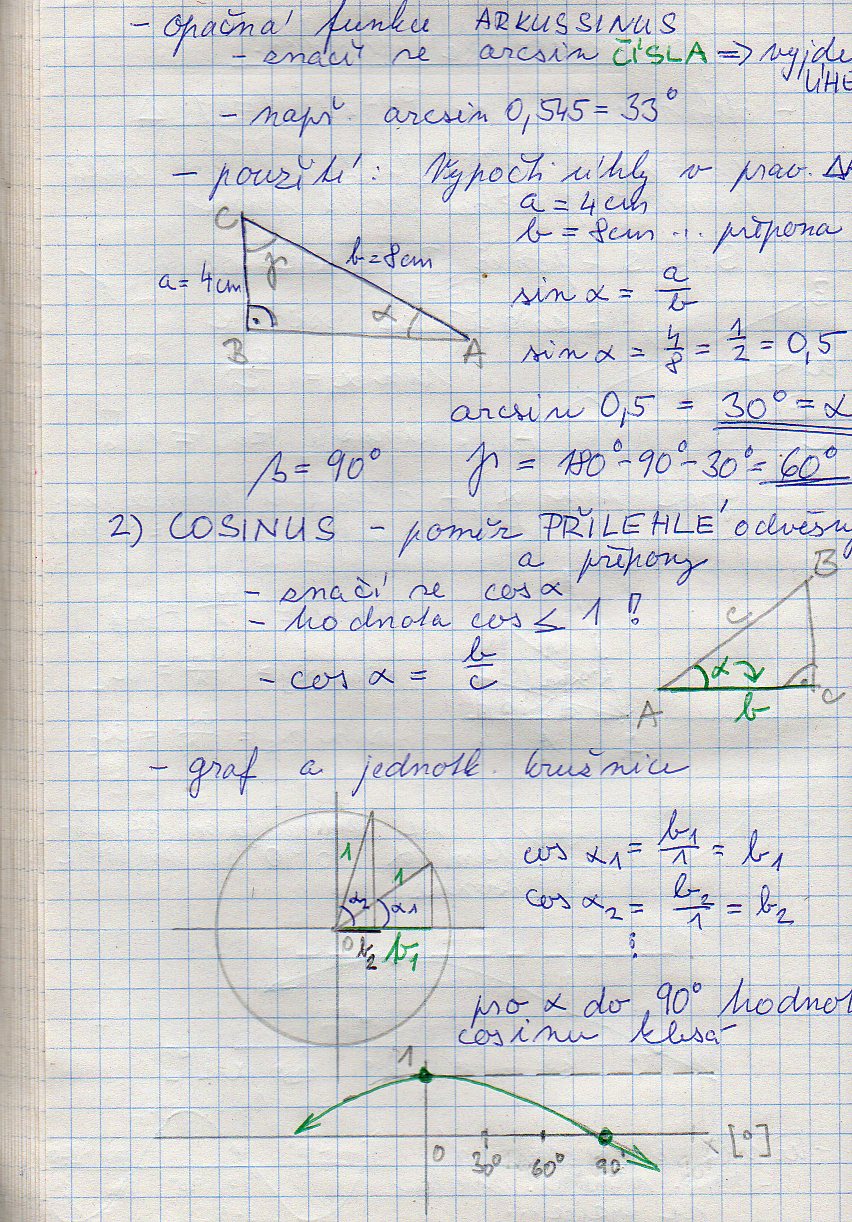 - opačná funkce ARKUSSINUS
- značí se arcsin ČÍSLA => vyjde
ÚHE
- např. arcsin 0,545 = 33°
- použití: Vypočti úhly v prav. Δ
a = 4cm
b = 8cm ... přepona
C
γ
b = 8cm
a = 4cm
α
B
A
sin α = a/b
sin α = 4/8 = 1/2 = 0,5
arcsin 0,5 = 30° = α
β = 90°
γ = 180° - 90° - 30° = 60°
2) COSINUS - poměr PŘILEHLÉ odvěsny
a přepony
- značí se cos α
- hodnota cos ≤ 1 !
- cos α = b/c
B
c
α
A
b
C
- graf a jednotk. kružnice
1
1
α2
α1
0
b2
b1
cos α1 = b1/1 = b1
cos α2 = b2/1 = b2
pro α do 90° hodnot
cosinu klesá
1
0
30°
60°
90°
x [°]